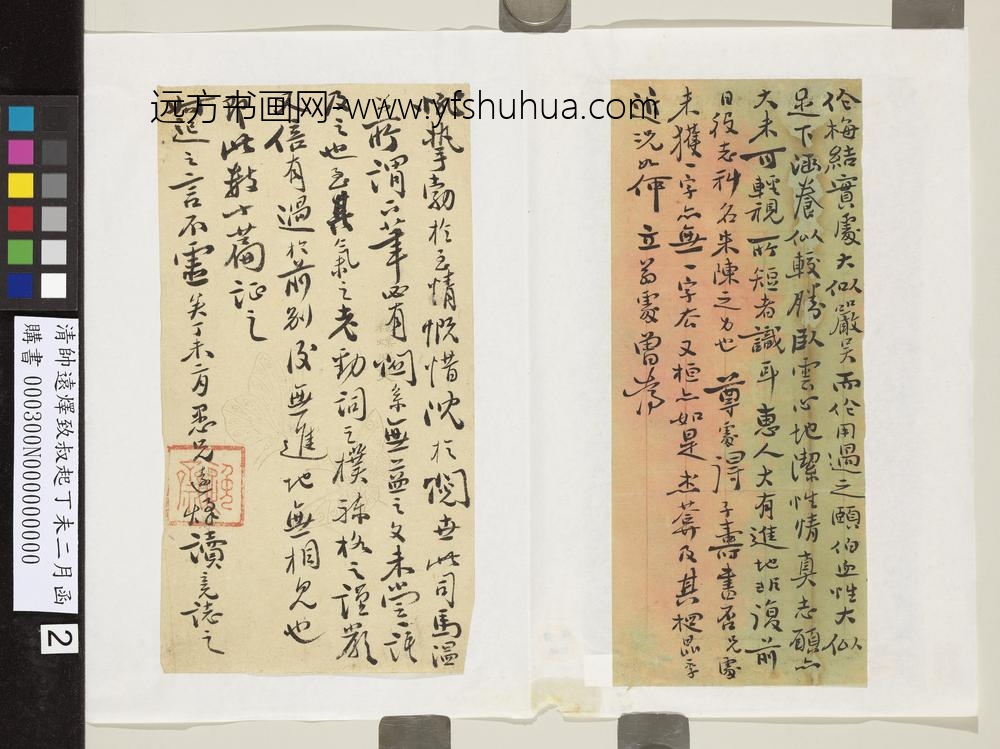 远方书画网- www.yfshuhua.com
伦梅結實處大似嚴吳而伦用過之頤伯血性大似
足下涵養似較勝臥雲心地潔性情真志願亦
大未可輕視所短者識耳惠人大有進地非復前
日役志科名朱陳之為也 尊處得子壽書否兄處
未獲一字亦無一字去又桓亦如是
近況如何 立翁處曾
懷摯勃於至情慨惜沈於閱世此司馬溫
所謂下筆必有關系無益之文未嘗託
及之也至其氣之老勁詞之樸辣格之謹嚴
倍有過於前別後無進地無相見也
即此數十篇証之
之言不虛矣丁未二月愚兄遠燡讀竟誌之
清帥遠燡致叔起丁未二月函
購書 000300N000000000
2